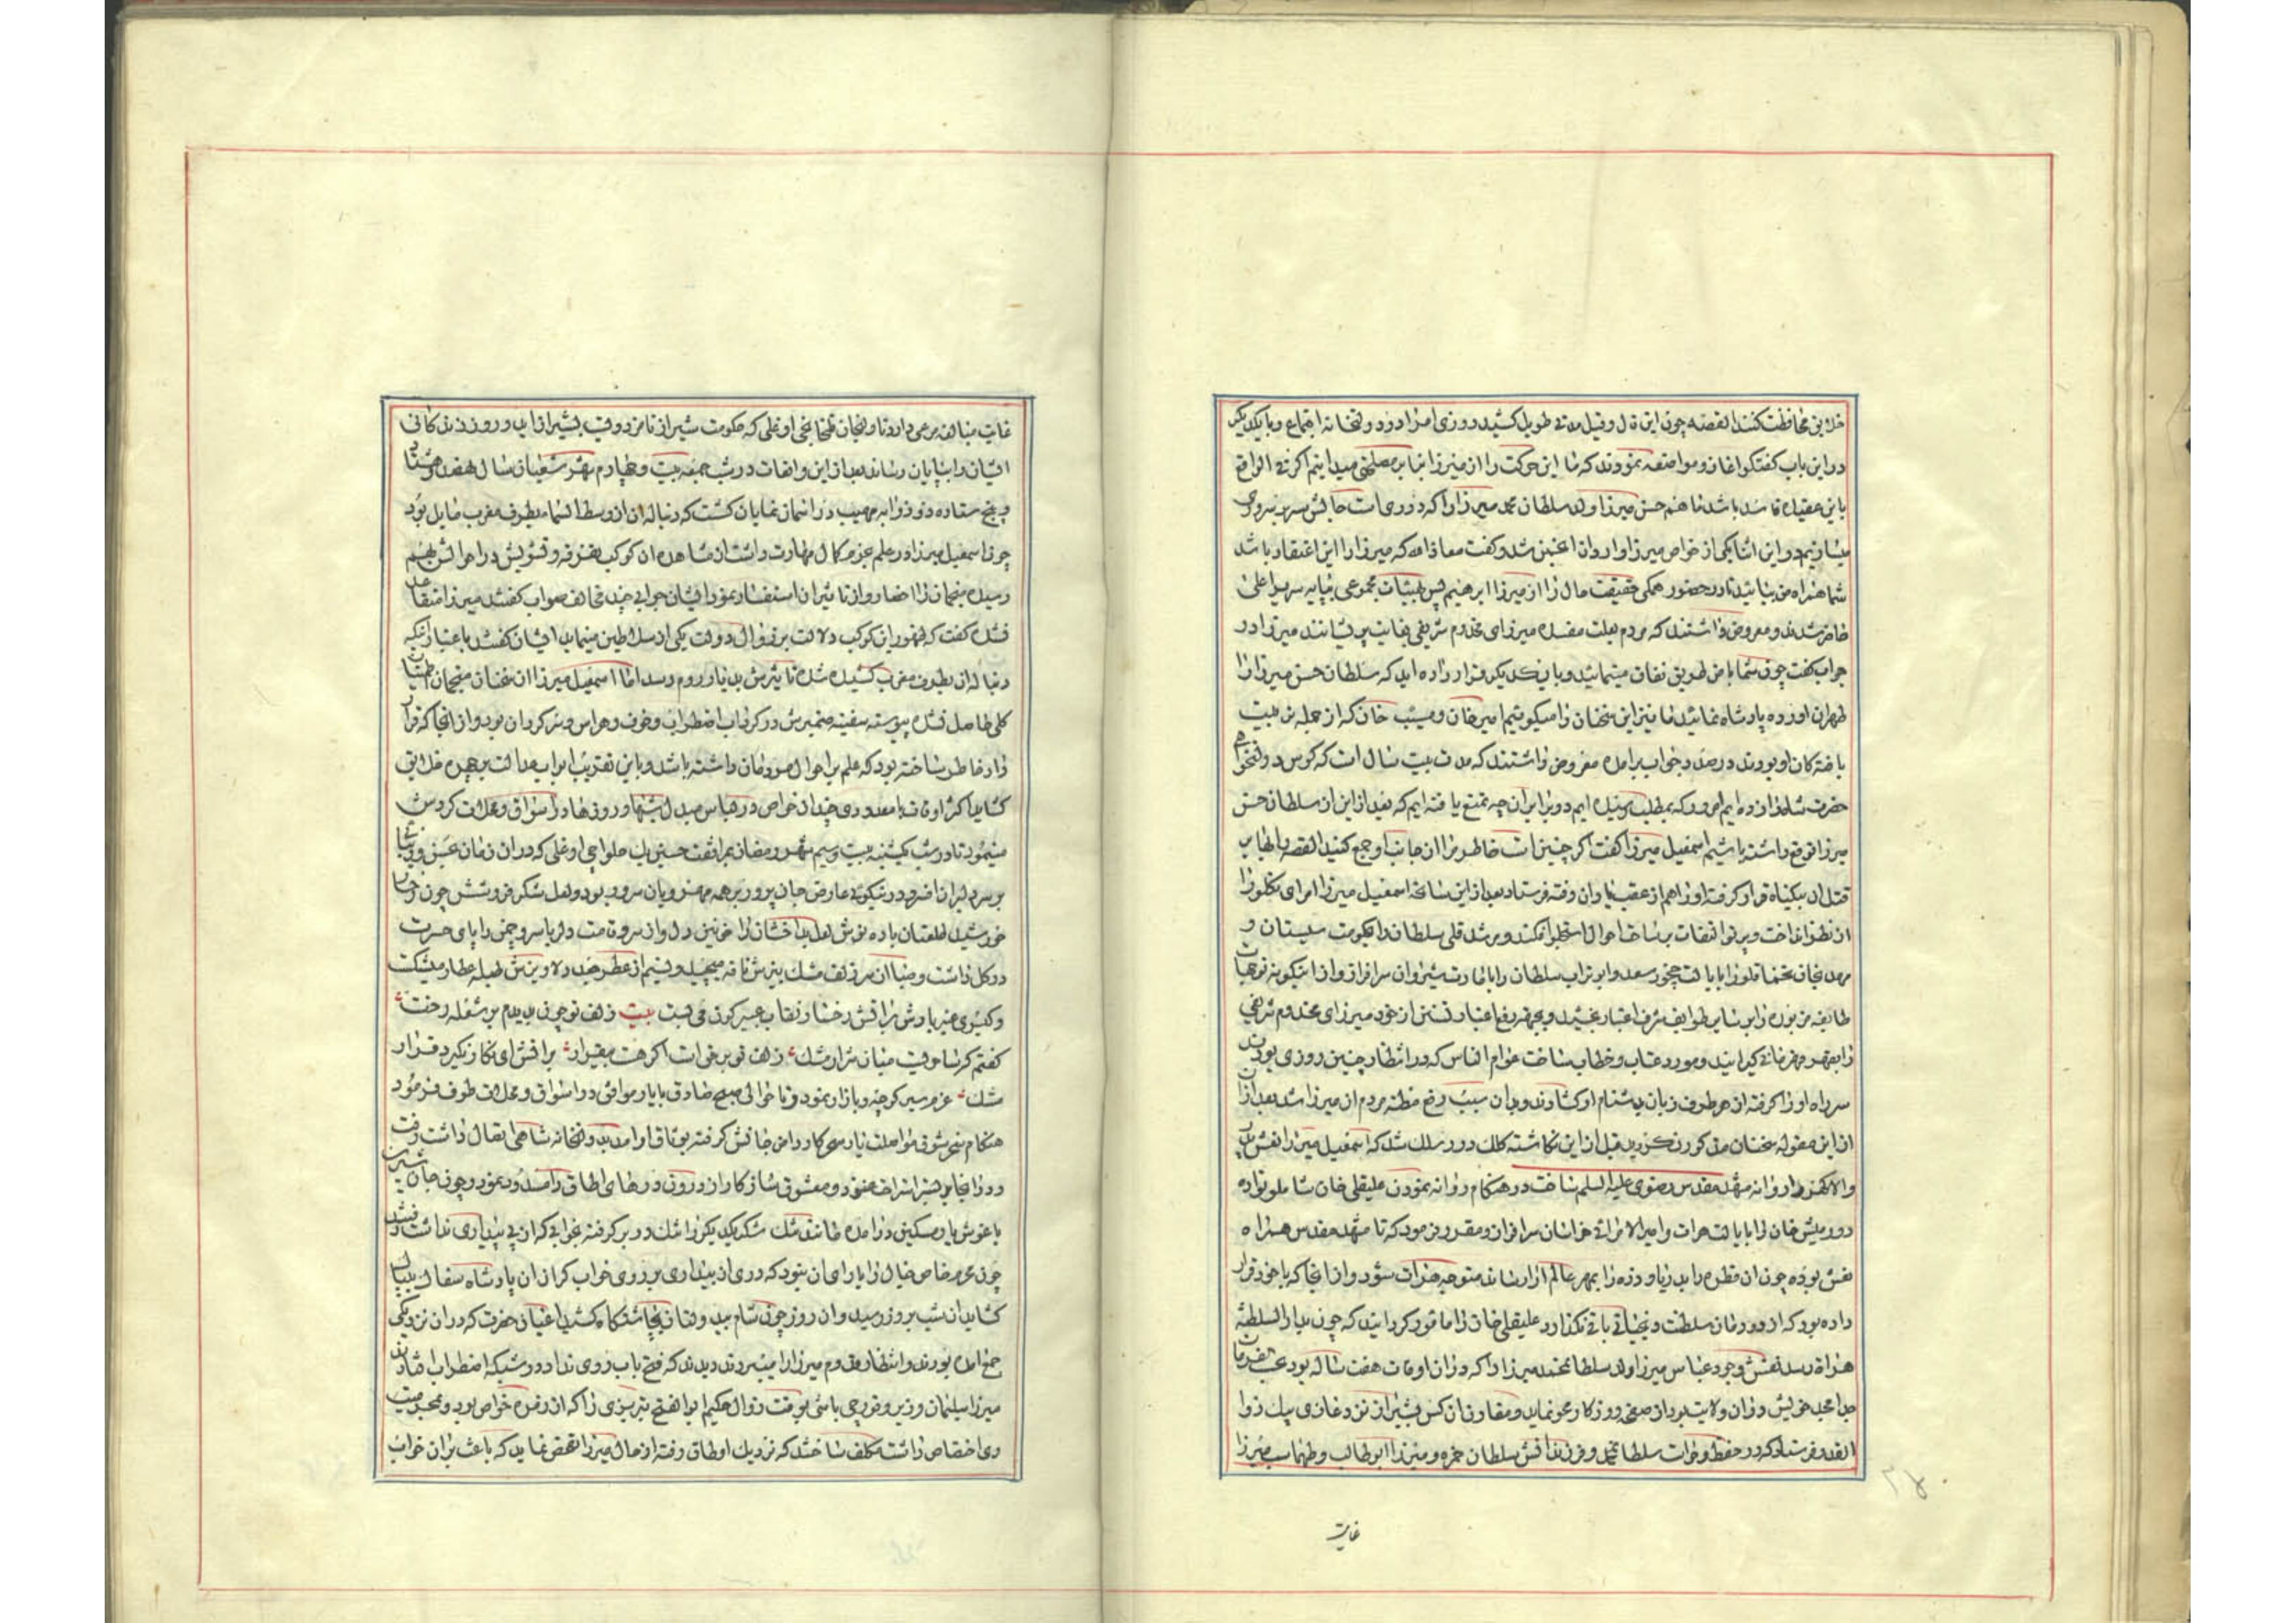 خلایق محافظت کنند القصه چون این قال و قیل مدتی طویل کشید روزی امرا در دولتخانه اجتماع و با یکدیگر
در این باب گفتگو آغاز و مواضعه نمودند که ما این حرکت را از میرزا بنابر مصلحتی میدانیم اگر فی الواقع
باین عقیده باشد ما هم حسن میرزا ولد سلطان محمد میرزا را که در ری است جالش سریر سروری
میسازیم در این اثنا یکی از خواص میرزا وارد آن انجمن شد و گفت معاذ الله که میرزا را این اعتقاد باشد
شما همراه من بیائید تا در حضور همگی حقیقت حال را از میرزا ابرهیم پس بهیئات مجموعی بپایه سریر اعلی
حاضر شدند و معروض داشتند که مردم بعلت مفسده میرزای مخدوم شریفی بغایت پریشانند میرزا در
جواب گفت چون شما با من طریق نفاق مینمائید و با یکدیگر قرار داده اید که سلطان حسن میرزا را
طهران آورده پادشاه نمائید ما نیز این سخنان را میگوئیم امیر خان و مسیب خان که از جمله تربیت
یافتگان او بودند در صدد جواب برآمده معروض داشتند که مدت بیست سال است که کوس دولتخواهی
حضرت شاهزاده زده ایم امروز که بمطلب رسیده ایم در برابر آن چه تمتع یافته ایم که بعد از این از سلطان حسن
میرزا توقع داشته باشیم اسمعیل میرزا گفت اگر چنین است خاطر مرا از جانب او جمع کنید القصه رایها بر
قتل آن بیگناه قرار گرفته او را هم از عقب یاران رفته فرستاد بعد از این سانحه اسمعیل میرزا امرای تکلو را
از نظر انداخت و پرتو التفات بر ساحت احوال استاجلو افکند و مرشد قلی سلطان را بحکومت سیستان و
مهدیقلیخان را بایالت چخور سعد و ابو تراب سلطان را بامارت شیروان سرافراز و از اینگونه توجهات
طایفه مزبوره را بر سایر طوایف شرف اعتبار بخشید و بجهه رفع اعتبار تسنن از خود میرزای مخدوم شریفی
را بقهر و قهرمانی گیرانید و مورد عتاب و خطاب ساخت عوام الناس که در انتظار چنین روزی بودند
سر راه او را گرفته از هر طرف زبان بدشنام او گشادند و بدان سبب رفع مظنه مردم از میرزا شد بعد از آن
از این مقوله سخنان مذکور نگردید قبل از این نگاشته کلک درر سلک شد که اسمعیل میرزا نعش پدر
والاگهر را روانه مشهد مقدس رضوی علیه السلم ساخت در هنگام روانه نمودن علیقلی خان شاملو نواده
دورمیش خان را بایالت هرات و امیر الامرائی خراسان سرافراز و مقرر فرمود که تا مشهد مقدس همراه
نعش بوده چون آن قطره را بدریا و ذره را بمهر عالم آرا رساند متوجه هرات شود و از آنجا که با خود قرار
داده بود که از دودمان سلطنت دیاری باقی نگذارد علیقلی خان را مأمور گردانید که چون بدار السلطنه
هراة رسد نقش وجود عباس میرزا ولد سلطان محمد میرزا را که در آن اوقات هفت ساله بود بحسب فرمان
جد امجد خویش در آن ولایت بود از صفحه روزگار محو نماید و مقارن آن کس بشیراز نزد غازی بیک ذو
القدر فرستاد که در حفظ و حراست سلطان محمد و فرزندانش سلطان حمزه و میرزا ابوطالب و طهماسب میرزا
غایت
غایت مبالغه مرعی دارد تا ولیخان قلخانچی اوغلی که حکومت شیراز نامزد وی بشیراز آید و روز زندگانی
ایشان را بپایان رساند بعد از این واقعات در شب جمعه بیست و چهارم شهر شعبان سال نهصد و هشتاد
و پنج ستاره ذو ذوابه مهیب در آسمان نمایان گشت که دنباله آن از وسط السما بطرف مغرب مایل بود
چون اسمعیل میرزا در علم نجوم کمال مهارت داشت از مشاهده آن کوکب تفرقه و تشویش در احوالش بهم
رسیده منجمان را احضار و از تاثیر آن استفسار نمود ایشان جوابی چند مخالف صواب گفتند میرزا متقاعد
نشده گفت که ظهور این کوکب دلالت بر زوال دولت یکی از سلاطین مینماید ایشان گفتند باعتبار آنکه
دنباله آن بطرف مغرب کشیده شده تاثیرش بدنیا و روم رسد اما اسمعیل میرزا از سخنان منجمان اطمینان
کلی حاصل نشده پیوسته سفینه ضمیرش در گرداب اضطراب و خوف و هراس سرگردان بود و از آنجا که قرار
داد خاطر ساخته بود که علم بر احوال مردمان داشته باشد و باین تقریب ابواب عدالت بر چهره خلایق
گشاید اکثر اوقات با معدودی چند از خواص در لباس مبدل شبها و روزها در اسواق و محلات گردش
مینمود تا در شب یکشنبه بیست و سیم شهر رمضان بمرافقت حسین بیک حلواچی اوغلی که در آن زمان حسن و زیبا
بر سر دلبران افسر و در نیکوئی عارض جان پرور بر همه مهرویان سرور بود و لعل شکر فروشش چون رخسار
خورشید لمعتان باده نوش لعل بدخشان را خونین دل و از سرو قامت دلربا سرو چمن را پای حسرت
در گل داشت و صبا از سر زلف مشک بیزش نافه میچید و نسیم از عطر جعد دلاویزش طبله عطار میشکست
و گیسوی عنبر بارش بر آتش رخسار نقاب عنبرگون می بست بیت زلف تو چون بدیدم بر شعله رخت
گفتم که ساحریست میان شرار مشک زلف تو بر رخت اگر هست بیقرار بر آتش ای نگار نگیرد قرار
مشک عزم سیر کوچه و بازار نمود و تا حوالی صبح صادق با یار موافق در اسواق و محلات طوف فرمود
هنگام سحر شوق مواصلت یار سحرکار دامن جانش گرفته بوثاق او آمد که بدولتخانه شاهی اتصال داشت رفت
و در آنجا بر بستر استراحت غنود و معشوق شازکار از درون درهای اطاق را مسدود نمود و چون جان شیرین
باغوش یار مسکین درآمده مانند مشک شکر یکدیگر را تنگ در بر گرفته بخوابی که از پی بیداری نداشت رفتند
چون محرم خاص خیال را یارای آن نبود که دری از بیداری بر روی خواب گران آن پادشاه سفاک بیباک
گشاید آن شب بروز رسید و آن روز چون شام بدید و فتان بچاشتگاه کشید اعیان حضرت که در آن نزدیکی
جمع آمده بودند و انتظار مقدم میرزا را میبردند دیدند که فتح باب روی نداد در شبکه اضطراب افتادند
میرزا سلیمان وزیر و قورچی باشی بوقت زوال حکیم ابو الفتح تبریزی را که از زمره خواص بود و بمحرمیت
وی اختصاص داشت مکلف ساختند که نزدیک اوطاق رفته از حال میرزا تفحص نماید که باعث بر آن خواب